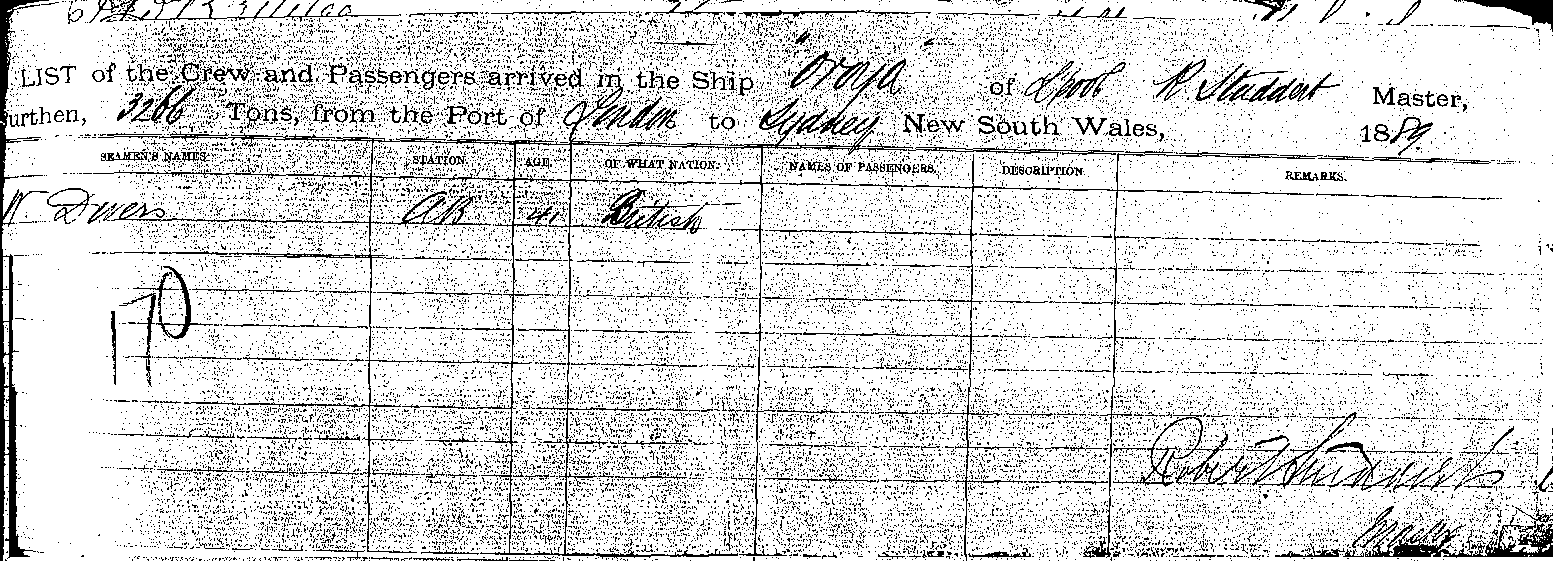 LIST of the Crew and Passengers arrived in the Ship "Oroya" of Lpool R Studdert Master,
urthen, 3266 Tons, from the Port of London to Sydney New South Wales, 1889.
SEAMEN'S NAMES. STATION. AGE. OF WHAT NATION. NAMES OF PASSENGERS. DESCRIPTION. REMARKS.
W Divers AB 41 British
170
Robert Studdert
Master